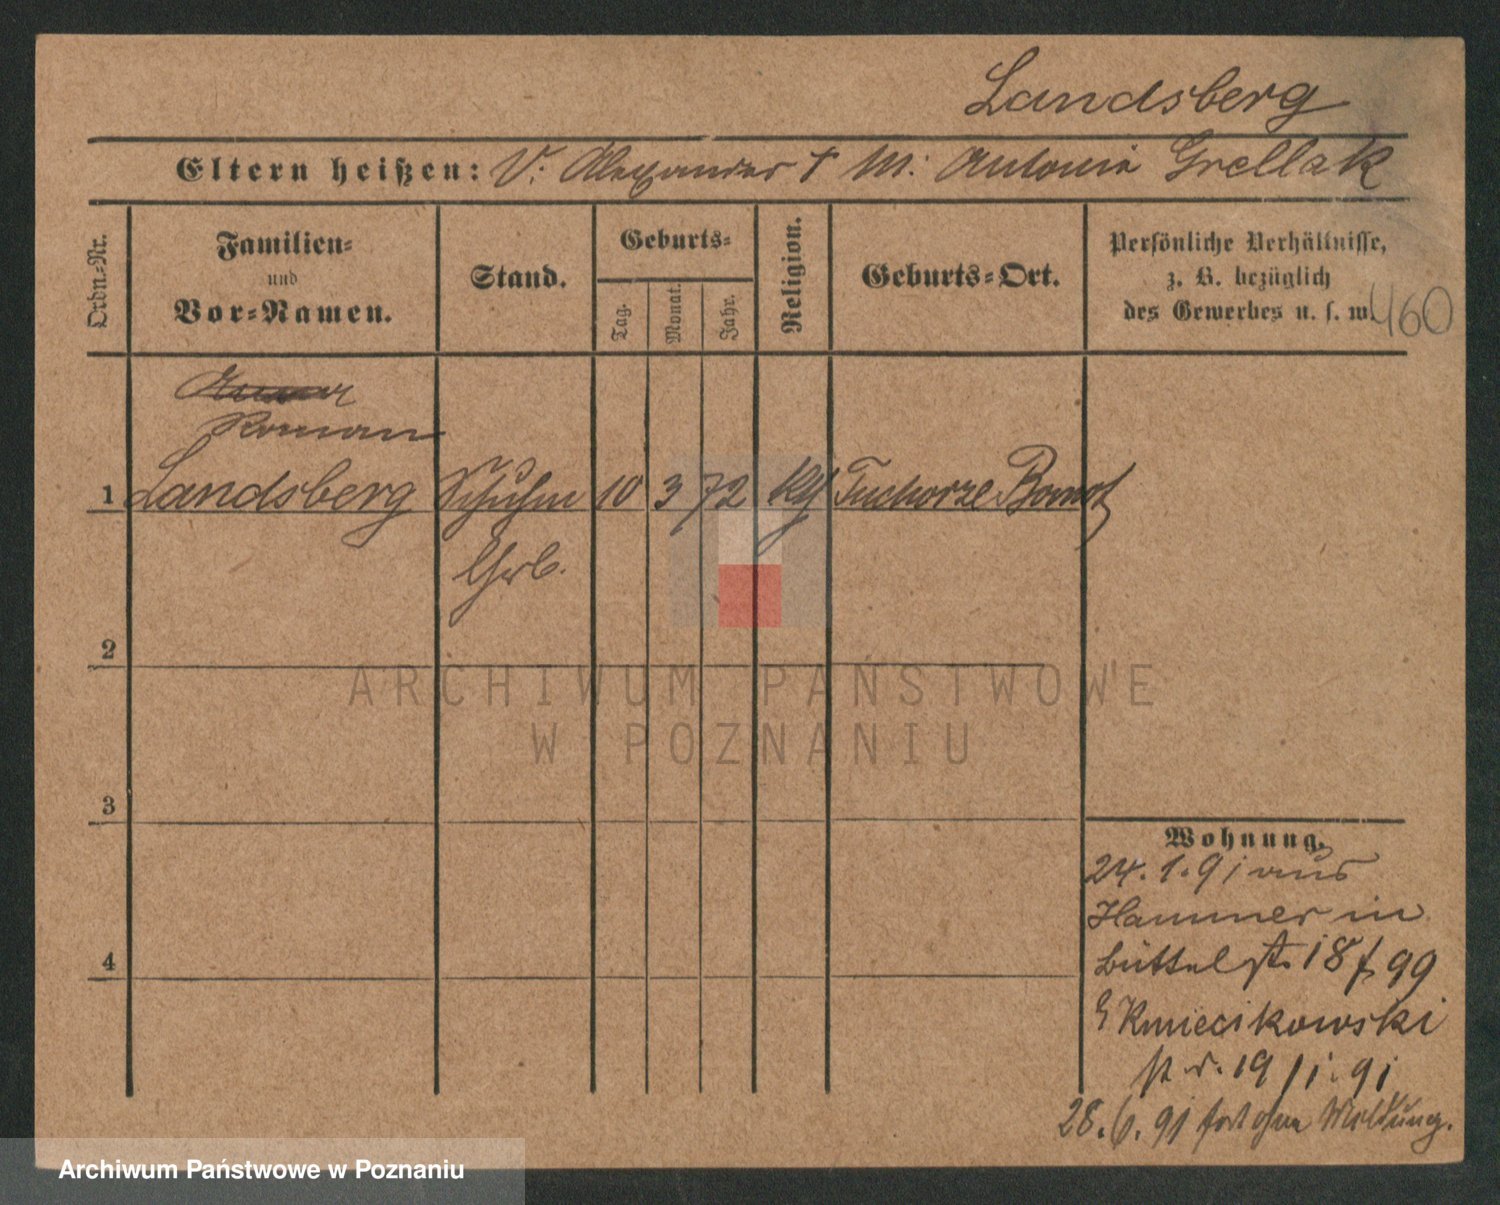 Landsberg
Eltern heißen: V: Alexander † M: Antonia Grellak
Ordn.=Nr.
Familien=
und
Vor=Namen.
Stand.
Geburts=
Tag.
Monat.
Jahr.
Religion.
Geburts=Ort.
Persönliche Verhältnisse,
z. B. bezüglich
des Gewerbes u. s. w.
460
Roman
1 Landsberg Schuhm 10 3 72 kth Tuchorze Bomst
2
3
4
Wohnung.
24. 1. 91 aus
Hammer in
Büttelst. 18 f 99
Kmiecikowski
19/1. 91
28. 6. 91 fort ohne Meldung.
ARCHIWUM PAŃSTWOWE
W POZNANIU
Archiwum Państwowe w Poznaniu